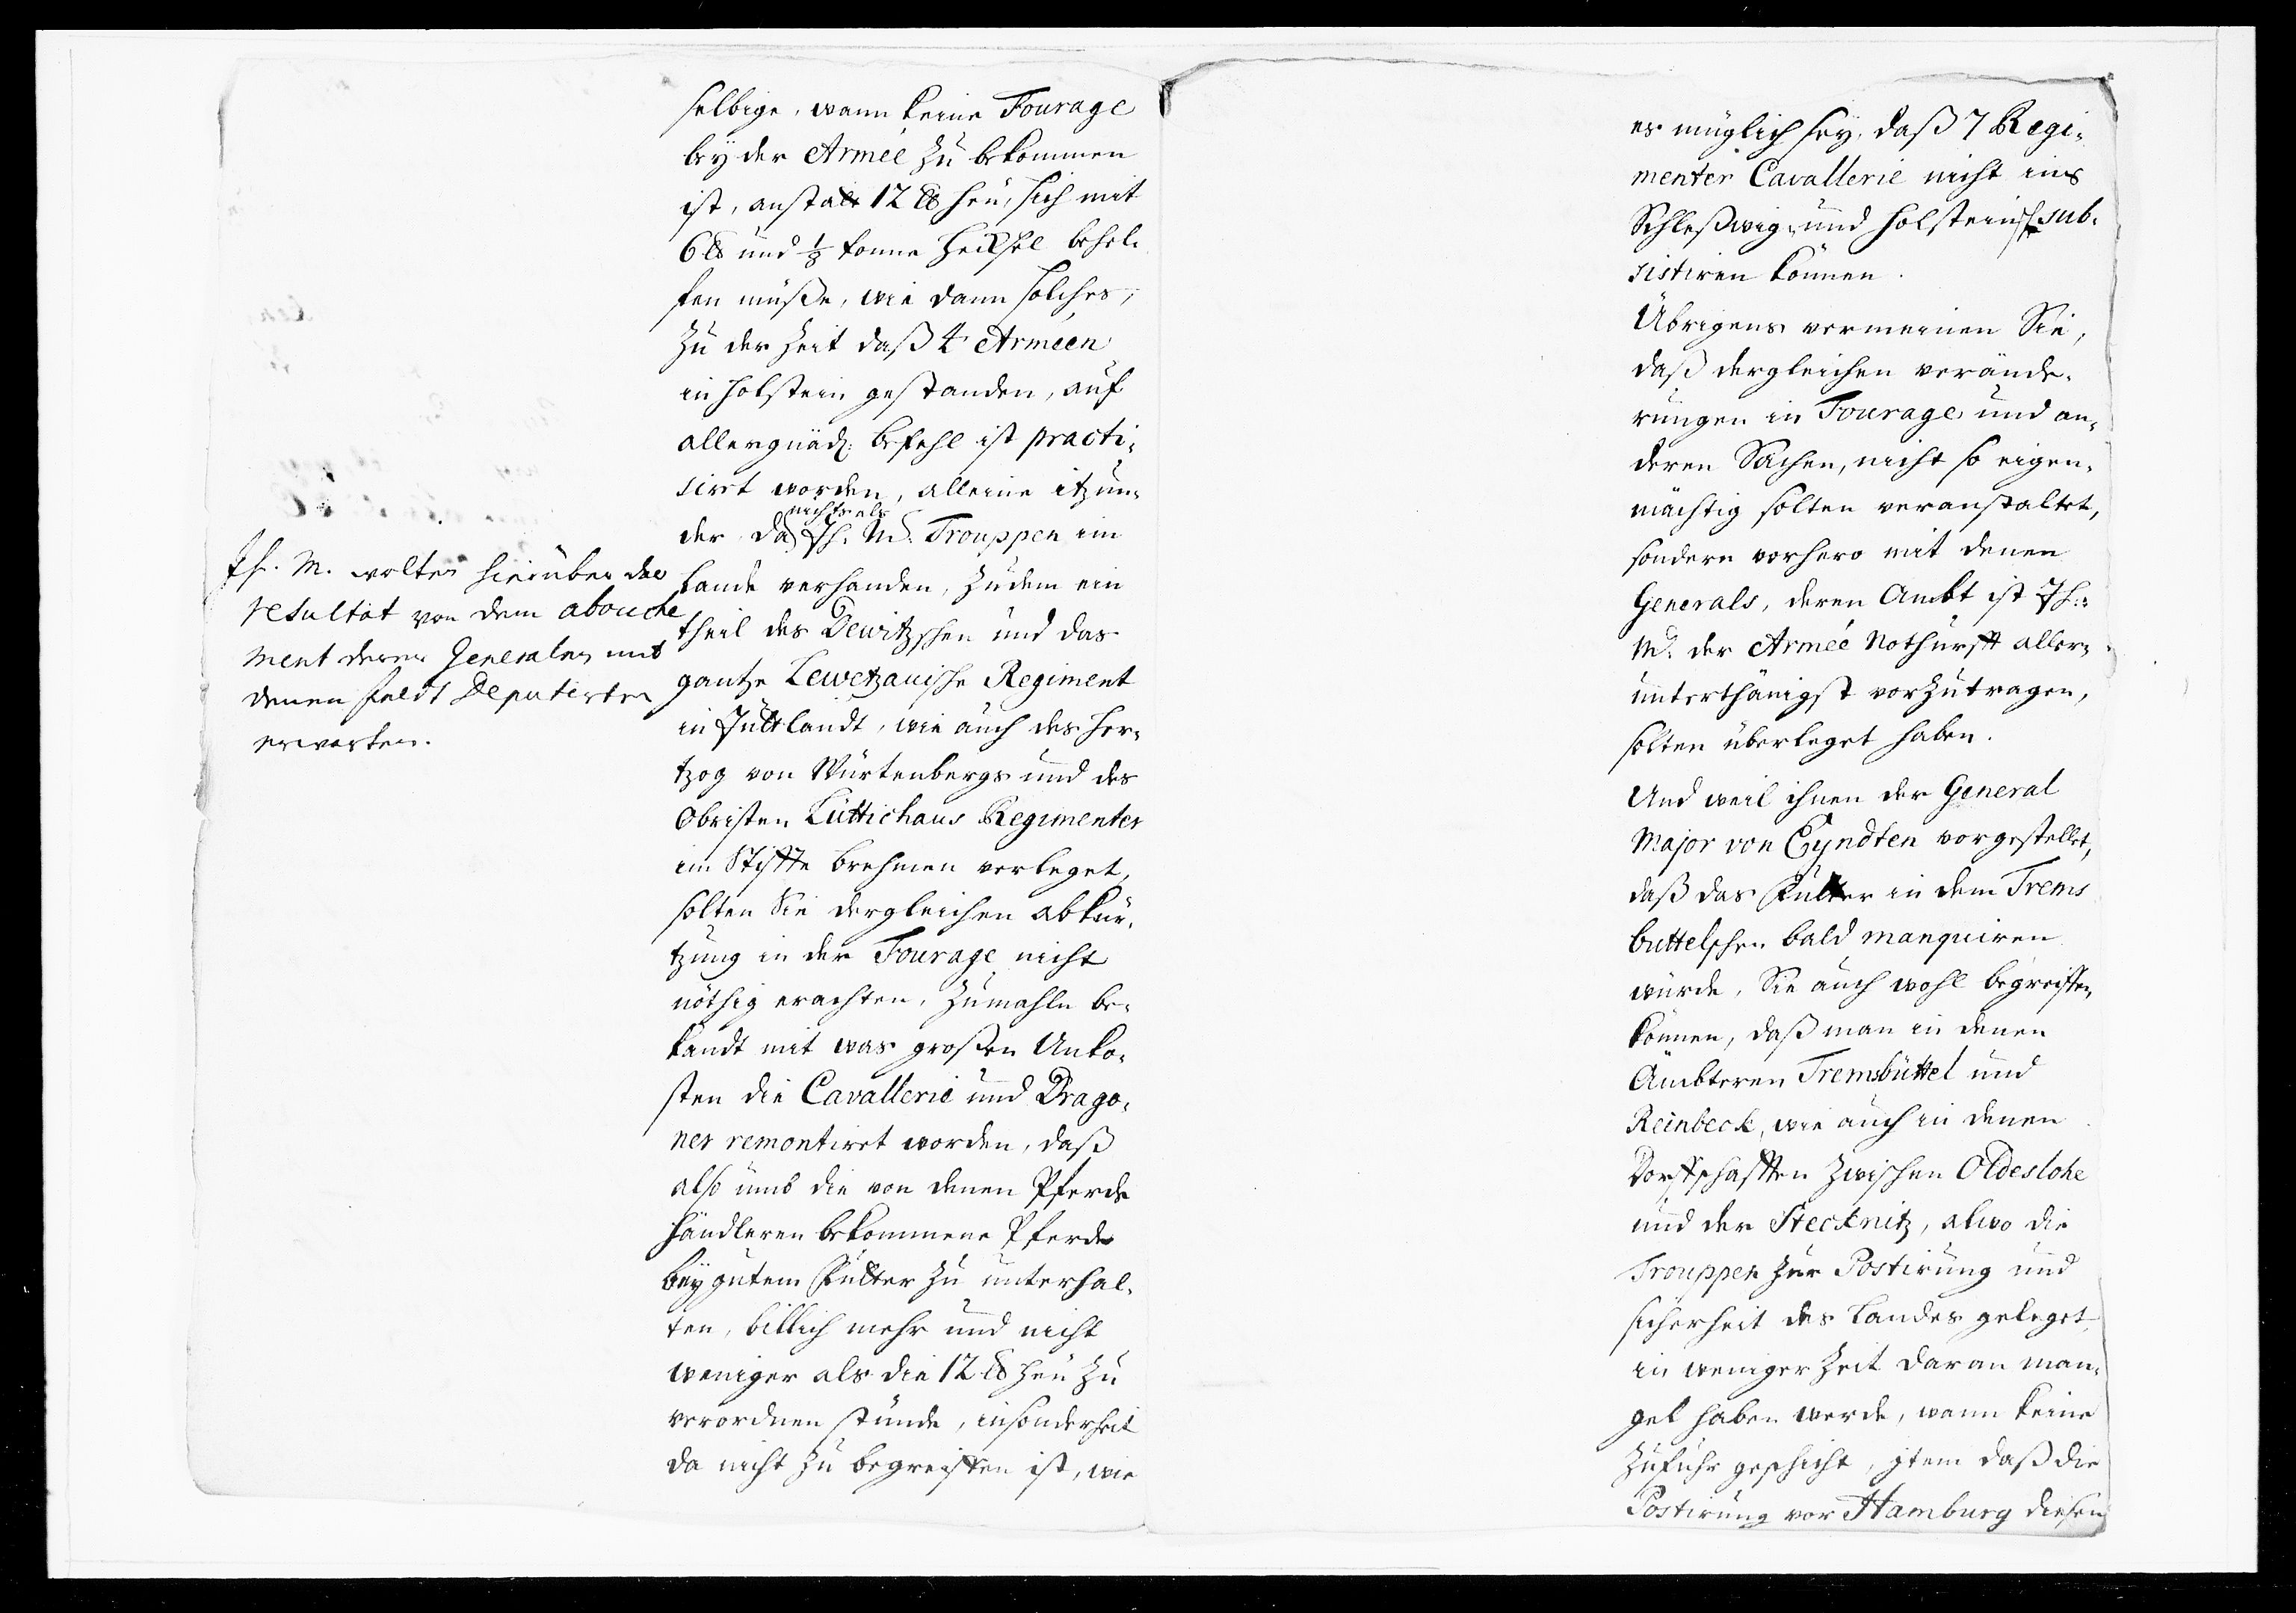 selbige, wann keine Fourage
bey der Armée zu bekommen
ist, anstatt 12 ℔ Heu, sich mit
6 ℔ und 1/8 tonne Heckſel behel-
fen müße, wie dann solches,
zu der Zeit daß 4 Arméen
in Holstein gestanden, auf
allergnäd: befehl ist practi-
sirt worden, alleine itzun-
nichts als
der da Ih. M. Trouppen im
Lande verhanden, zudem ein
theil des Dewitzschen und das
gantze Lewetzauische Regiment
in Jüttlandt, wie auch des Her-
tzog von Würtenbergs und des
Obristen Lüttichaus Regimenter
im Stiffte Brehmen verleget,
solten Sie dergleichen abkür-
tzung in der Fourage nicht
nöthig erachten, zumahln be-
kandt mit was großen Unko-
sten die Cavallerie und Drago-
ner remontiret worden, daß
also umb die von denen Pferde
händleren bekommene Pferde
bey gutem Futter zu unterhal-
ten, billich mehr und nicht
weniger als die 12 ℔ Heu zu
verordnen stünde, insonderheit
da nicht zu begreiffen ist, wie
Ih. M. wolten hierüber das
resultat von dem abouche
ment derer Generalen mit
denen feldt Deputirten
erwarten.
es müglich sey, daß 7 Regi-
menter Cavallerie nicht ins
Schleßwig- und Holsteins. sub-
sistiren können.
Übrigens vermeinen Sie,
daß dergleichen verände-
rungen in Fourage und an-
deren Sachen, nicht so eigen-
mächtig solten veranstaltet,
sondern vorhero mit denen
Generals, deren Ambt ist Ih:
M. der Armée Nothurfft aller-
unterthänigst vorzutragen,
solten überleget haben.
Und weil ihnen der General
Major von Eyndten vorgestellet,
daß das Futter in dem Trems
buttelschen bald manquiren
würde, Sie auch wohl begreiffen
können, daß man in denen
Ämbteren Tremsbüttel und
Reinbeck, wie auch in denen
Dorffschafften zwischen Oldeslohe
und der Stecknitz, alwo die
Trouppen zur Postirung und
sicherheit des Landes geleget,
in weniger Zeit daran man-
gel haben werde, wann keine
Zufuhr geschicht, item daß die
Postirung vor Hamburg diesen